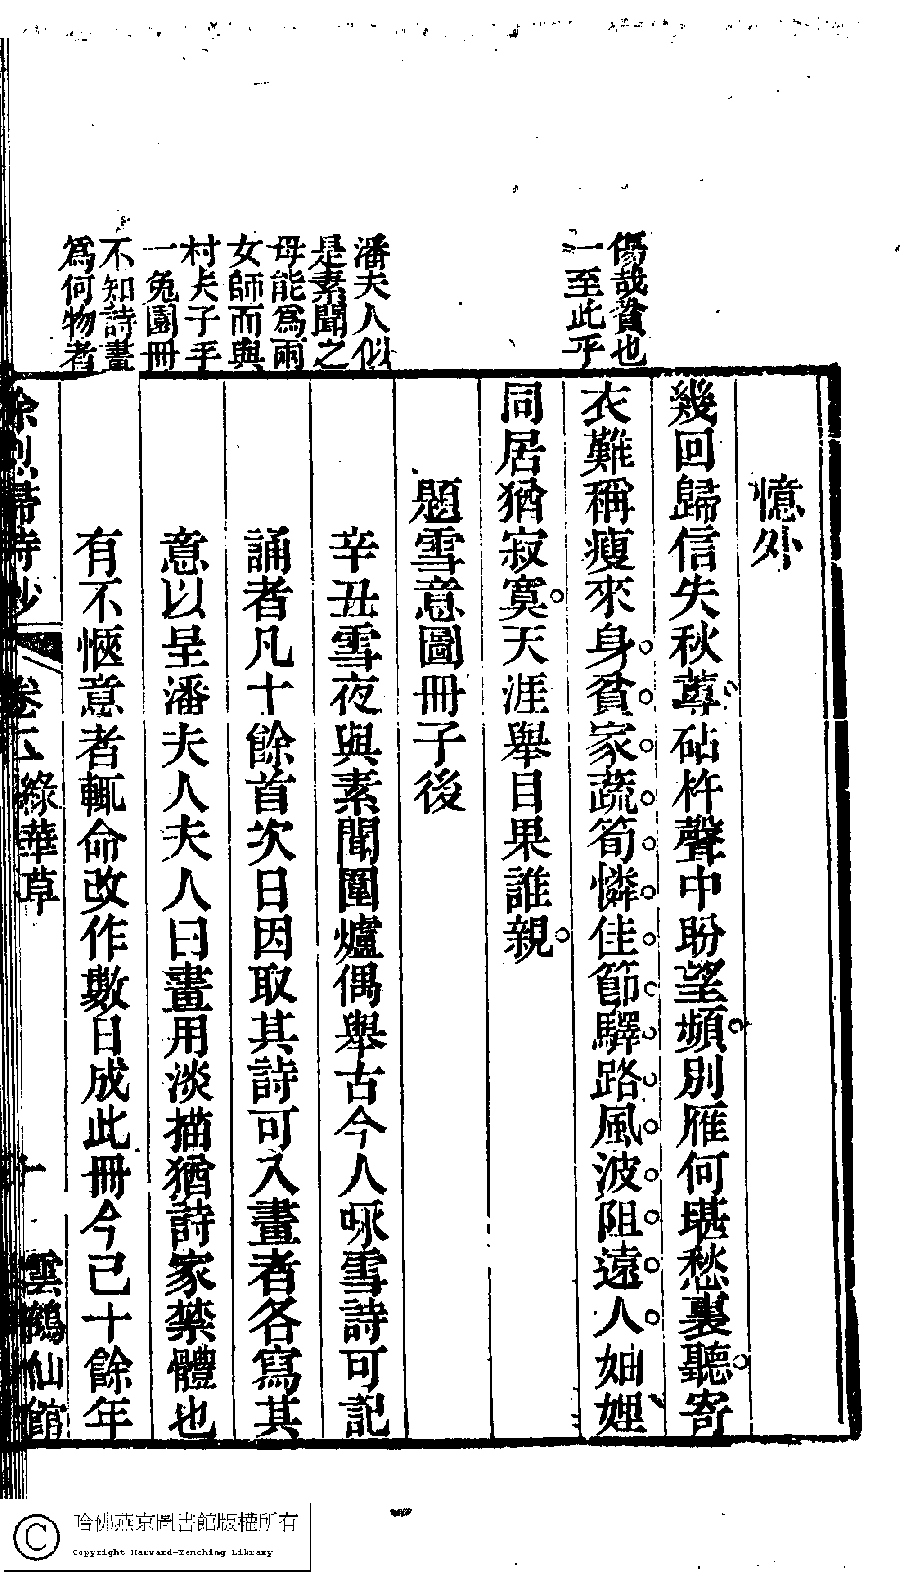 傷哉貧也
一至此乎
潘夫人似
是素聞之
母能爲兩
女師而與
村夫子手
一兔園冊
不知詩畫
爲何物者
憶外
幾回歸信失秋蓴砧杵聲中盼望頻別雁何堪愁裏聽寄
衣難稱瘦來身貧家蔬筍憐佳節驛路風波阻遠人妯娌
同居猶寂寞天涯舉目果誰親
題雪意圖冊子後
辛丑雪夜與素聞圍爐偶舉古今人咏雪詩可記
誦者凡十餘首次日因取其詩可入畫者各寫其
意以呈潘夫人夫人曰畫用淡描猶詩家禁體也
有不愜意者輒命改作數日成此冊今已十餘年
歸詩鈔
卷 綠華草
十
雲鶴仙館
哈佛燕京圖書館版權所有
Copyright Harvard-Yenching Library